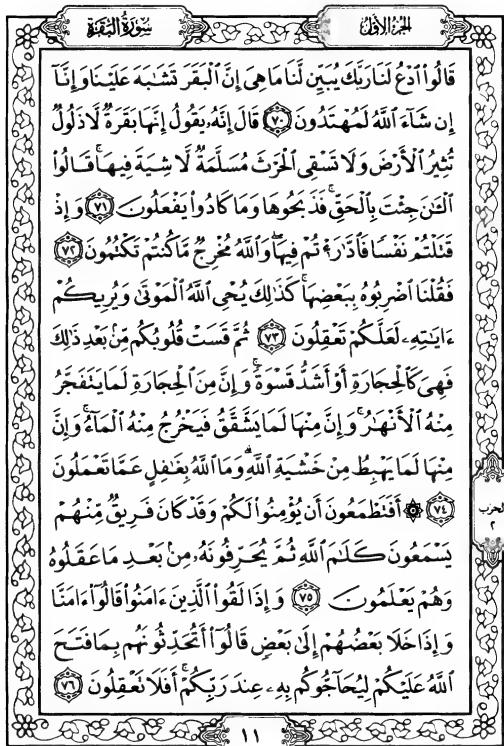 سُورَةُ البَقَرَةِ
الجُزْءُ الأَوَّلُ
قَالُوا۟ ٱدْعُ لَنَا رَبَّكَ يُبَيِّن لَّنَا مَا هِىَ إِنَّ ٱلْبَقَرَ تَشَٰبَهَ عَلَيْنَا وَإِنَّآ
إِن شَآءَ ٱللَّهُ لَمُهْتَدُونَ ٧٠ قَالَ إِنَّهُۥ يَقُولُ إِنَّهَا بَقَرَةٌ لَّا ذَلُولٌ
تُثِيرُ ٱلْأَرْضَ وَلَا تَسْقِى ٱلْحَرْثَ مُسَلَّمَةٌ لَّا شِيَةَ فِيهَا ۚ قَالُوا۟
ٱلْـَٰٔنَ جِئْتَ بِٱلْحَقِّ ۚ فَذَبَحُوهَا وَمَا كَادُوا۟ يَفْعَلُونَ ٧١ وَإِذْ
قَتَلْتُمْ نَفْسًا فَٱدَّٰرَْٰٔتُمْ فِيهَا ۖ وَٱللَّهُ مُخْرِجٌ مَّا كُنتُمْ تَكْتُمُونَ ٧٢
فَقُلْنَا ٱضْرِبُوهُ بِبَعْضِهَا ۚ كَذَٰلِكَ يُحْىِ ٱللَّهُ ٱلْمَوْتَىٰ وَيُرِيكُمْ
ءَايَٰتِهِۦ لَعَلَّكُمْ تَعْقِلُونَ ٧٣ ثُمَّ قَسَتْ قُلُوبُكُم مِّنۢ بَعْدِ ذَٰلِكَ
فَهِىَ كَٱلْحِجَارَةِ أَوْ أَشَدُّ قَسْوَةً ۚ وَإِنَّ مِنَ ٱلْحِجَارَةِ لَمَا يَتَفَجَّرُ
مِنْهُ ٱلْأَنْهَٰرُ ۚ وَإِنَّ مِنْهَا لَمَا يَشَّقَّقُ فَيَخْرُجُ مِنْهُ ٱلْمَآءُ ۚ وَإِنَّ
مِنْهَا لَمَا يَهْبِطُ مِنْ خَشْيَةِ ٱللَّهِ ۗ وَمَا ٱللَّهُ بِغَٰفِلٍ عَمَّا تَعْمَلُونَ
٧٤ ۞ أَفَتَطْمَعُونَ أَن يُؤْمِنُوا۟ لَكُمْ وَقَدْ كَانَ فَرِيقٌ مِّنْهُمْ
يَسْمَعُونَ كَلَٰمَ ٱللَّهِ ثُمَّ يُحَرِّفُونَهُۥ مِنۢ بَعْدِ مَا عَقَلُوهُ
وَهُمْ يَعْلَمُونَ ٧٥ وَإِذَا لَقُوا۟ ٱلَّذِينَ ءَامَنُوا۟ قَالُوٓا۟ ءَامَنَّا
وَإِذَا خَلَا بَعْضُهُمْ إِلَىٰ بَعْضٍ قَالُوٓا۟ أَتُحَدِّثُونَهُم بِمَا فَتَحَ
ٱللَّهُ عَلَيْكُمْ لِيُحَآجُّوكُم بِهِۦ عِندَ رَبِّكُمْ ۚ أَفَلَا تَعْقِلُونَ ٧٦
الحزب
٢
١١